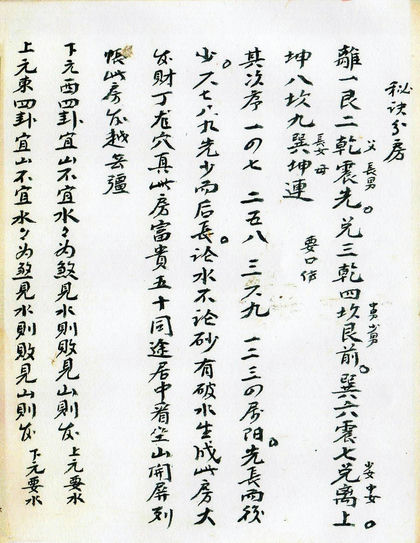 秘诀分房
離一艮二乾震先。兑三乾四坎艮前。巽六震七兑离上。
父 長男
坤八坎九巽坤連
長女 母
要口传
其次序 一四七 二五八 三六九 一二三四房陽先長而後
少。六七八九先少而后長。論水不論砂有破水生成此房大
发财丁若穴真此房富貴五十同途居中看坐山開屏列
帳此房发越无疆
下元西四卦宜山不宜水々为煞見水則敗見山則发 上元要水
上元東四卦宜山不宜水々为煞見水則敗見山則发 下元要水